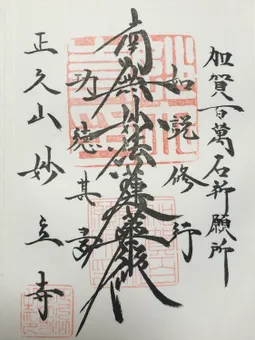 加賀百萬石祈願所
如説修行
南無妙法蓮華経
功徳甚多
正久山妙立寺